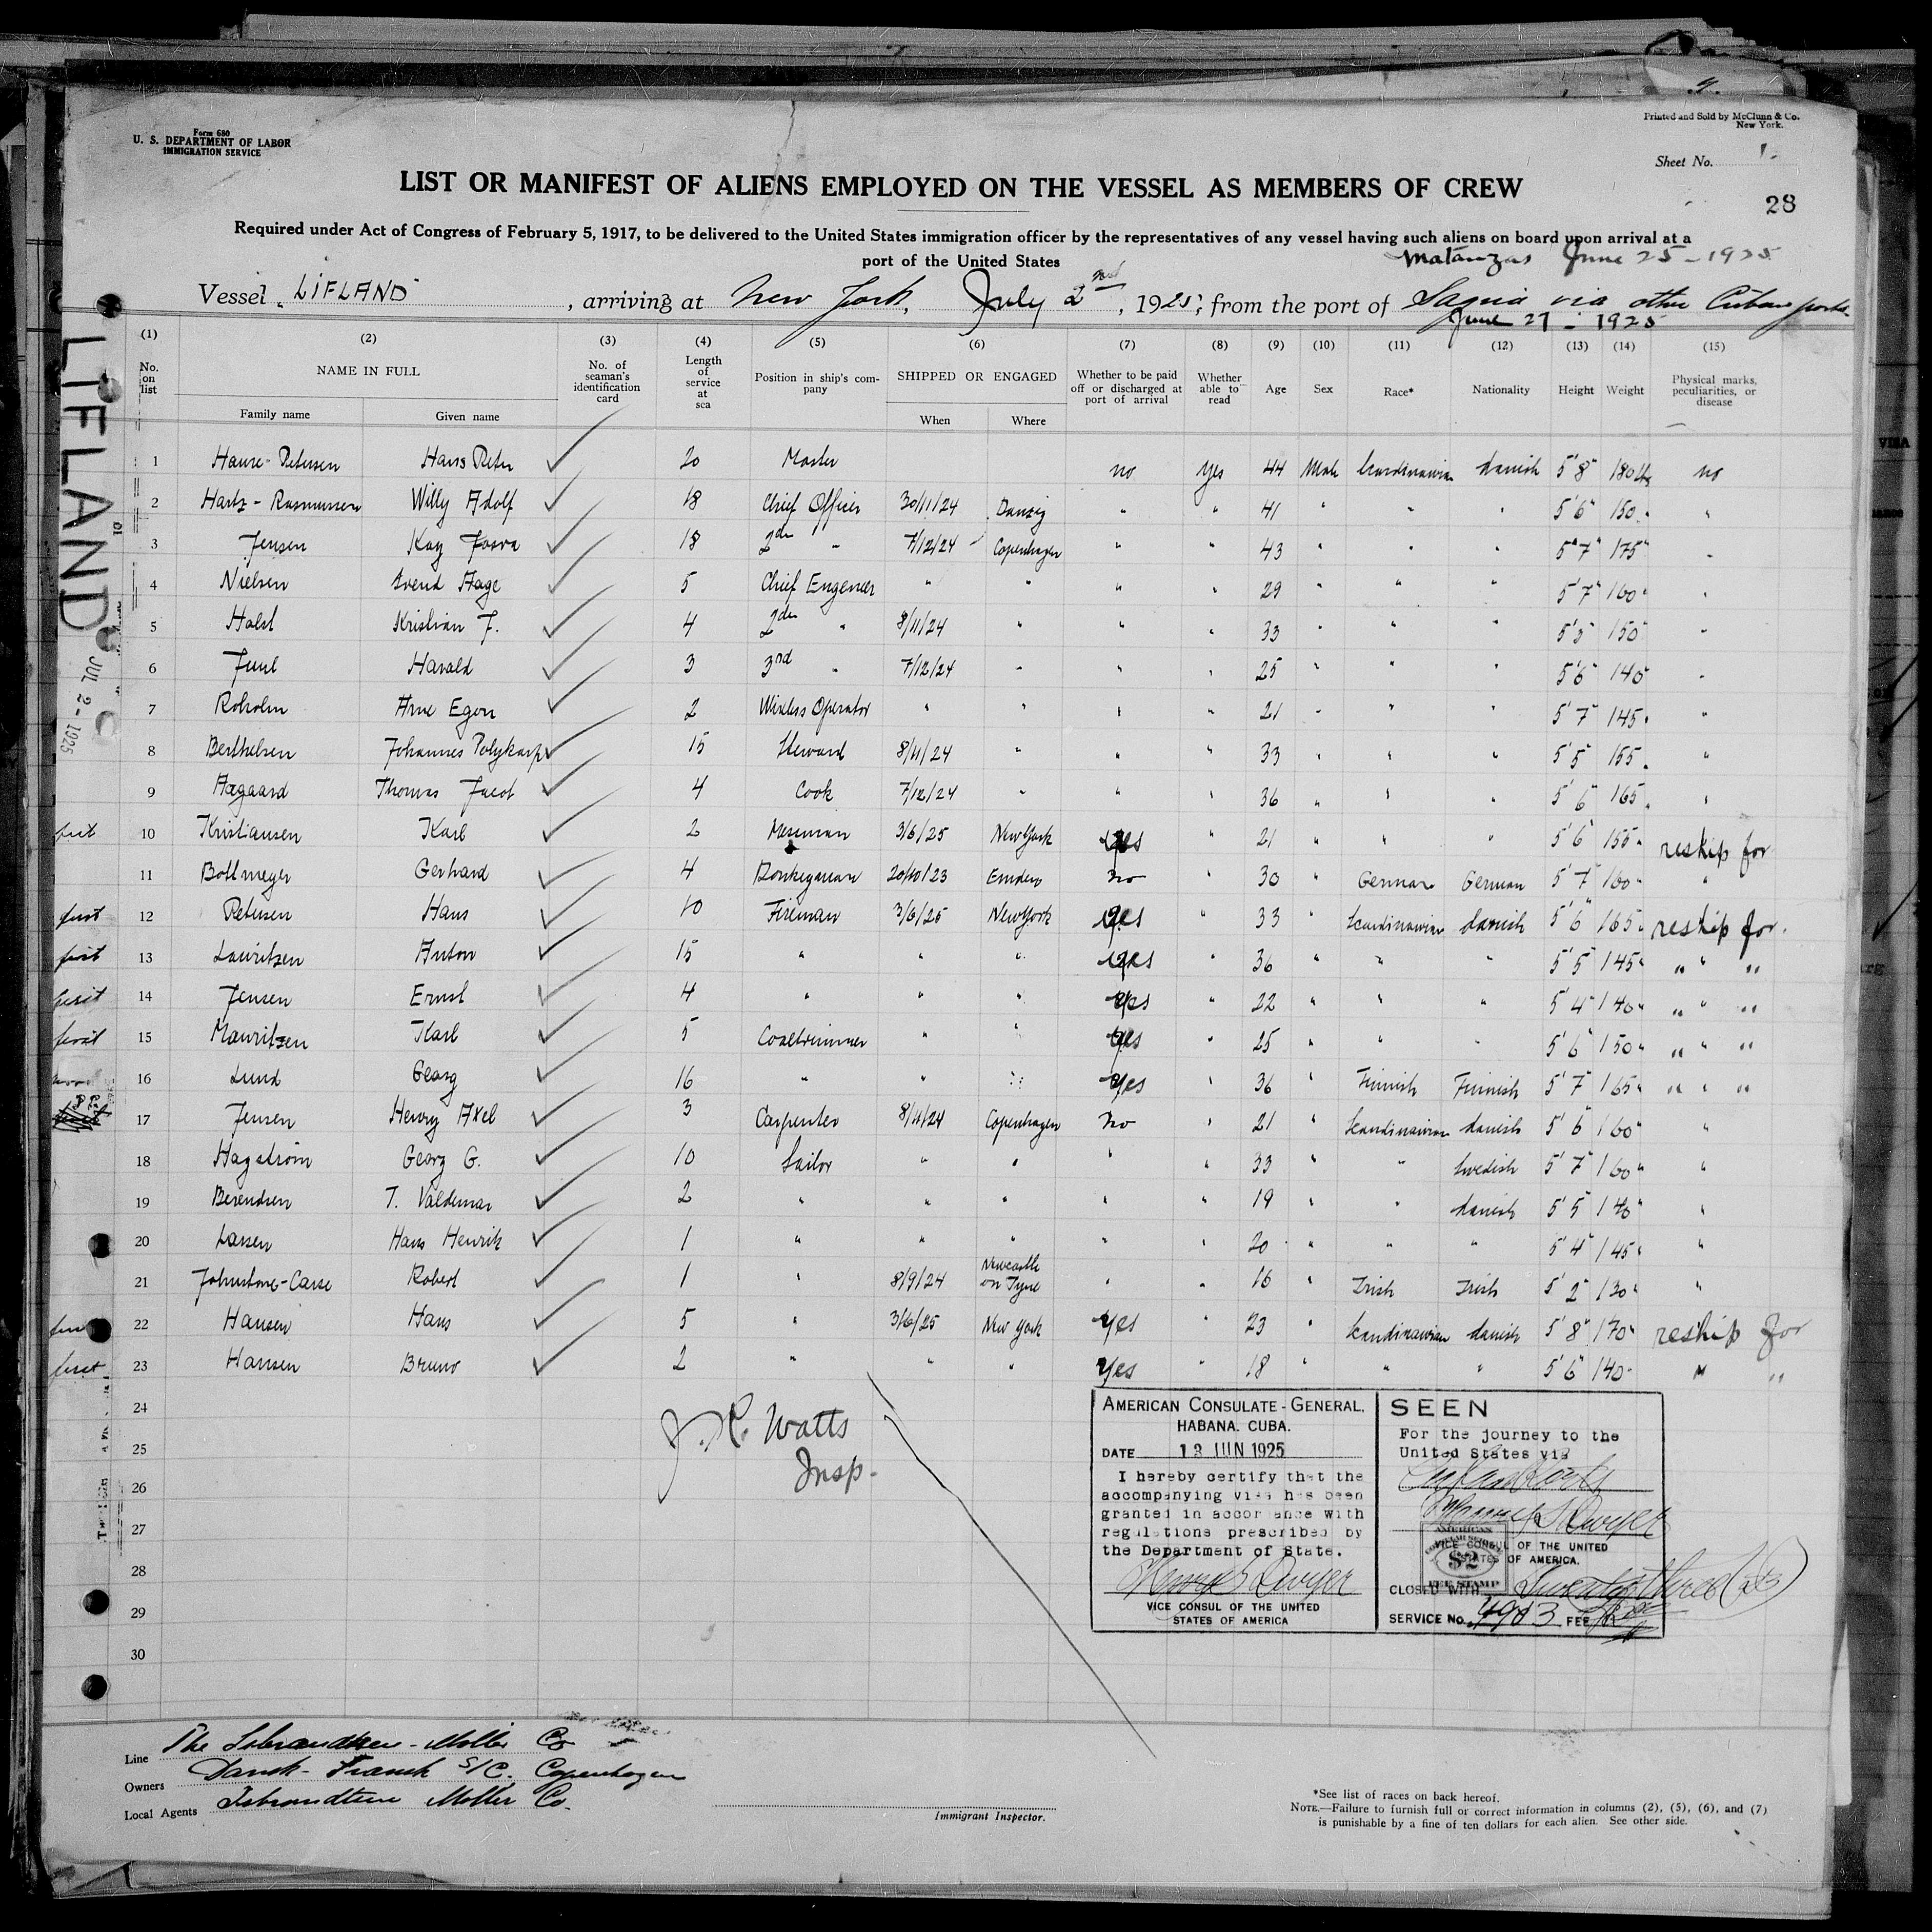 Form 680
U. S. DEPARTMENT OF LABOR
IMMIGRATION SERVICE
Printed and Sold by McClunn & Co.
New York.
Sheet No. 1.
28
LIST OR MANIFEST OF ALIENS EMPLOYED ON THE VESSEL AS MEMBERS OF CREW
Required under Act of Congress of February 5, 1917, to be delivered to the United States immigration officer by the representatives of any vessel having such aliens on board upon arrival at a
port of the United States
Matanzas June 25 - 1925
Vessel LIFLAND, arriving at New York, July 2nd, 1925, from the port of Sagua via other Cuban ports.
June 27 - 1925
LIFLAND
JUL 2 - 1925
(1) (2) (3) (4) (5) (6) (7) (8) (9) (10) (11) (12) (13) (14) (15)
No. on list
NAME IN FULL
Family name
Given name
No. of seaman's identification card
Length of service at sea
Position in ship's company
SHIPPED OR ENGAGED
When
Where
Whether to be paid off or discharged at port of arrival
Whether able to read
Age
Sex
Race*
Nationality
Height
Weight
Physical marks, peculiarities, or disease
1 Hans Peter 20 Master no yes 44 Male Scandinavian danish 5'8" 180 lbs no
2 Hartz-Rasmussen Willy Adolf 18 Chief Officer 30/11/24 Danzig " " 41 " " " 5'6" 150 "
3 Jensen Kay 18 2de " 7/12/24 Copenhagen " " 43 " " " 5'7" 175 "
4 Nielsen Svend Aage 5 Chief Engeneer " " " " 29 " " " 5'7" 160 "
5 Holst Kristian F. 4 2de " 8/11/24 " " " 33 " " " 5'5" 150 "
6 Juul Harald 3 3rd " 7/12/24 " " " 25 " " " 5'6" 140 "
7 Roholm Arne Egon 2 Wireless Operator " " " " 21 " " " 5'7" 145 "
8 Berthelsen Johannes Polykarp 15 Steward 8/11/24 " " " 33 " " " 5'5" 155 "
9 Aagaard Thomas Jacob 4 Cook 7/12/24 " " " 36 " " " 5'6" 165 "
first 10 Kristiansen Karl 2 Messman 3/6/25 New York yes " 21 " " " 5'6" 155 reship for
11 Bollmeyer Gerhard 4 Donkeyman 20/10/23 Emden no " 30 " German German 5'7" 160 "
first 12 Petersen Hans 10 Fireman 3/6/25 New York yes " 33 " Scandinavian danish 5'6" 165 reship for.
first 13 Lauritzen Anton 15 " " " yes " 36 " " " 5'5" 145 " " "
first 14 Jensen Ernst 4 " " " yes " 22 " " " 5'4" 140 " " "
first 15 Mauritzen Karl 5 Coaltrimmer " " yes " 25 " " " 5'6" 150 " " "
16 Lund Georg 16 " " " yes " 36 " Finnish Finnish 5'7" 165 " " "
17 Jensen Henry Axel 3 Carpenter 8/11/24 Copenhagen no " 21 " Scandinavian danish 5'6" 160 "
18 Hagström Georg G. 10 Sailor " " " " 33 " " Swedish 5'7" 160 "
19 Berendsen T. Valdemar 2 " " " " " 19 " " danish 5'5" 140 "
20 Larsen Hans Henrik 1 " " " " " 20 " " " 5'4" 145 "
21 Johnstone-Carse Robert 1 " 8/9/24 Newcastle on Tyne " " 16 " Irish Irish 5'2" 130 "
first 22 Hansen Hans 5 " 3/6/25 New York yes " 23 " Scandinavian danish 5'8" 170 reship for
first 23 Hansen Bruno 2 " " " yes " 18 " " " 5'6" 140 " "
24
25
26
27
28
29
30
J. R. Watts
Insp.
AMERICAN CONSULATE-GENERAL,
HABANA. CUBA.
DATE 13 JUN 1925
I hereby certify that the
accompanying visa has been
granted in accordance with
regulations prescribed by
the Department of State.
VICE CONSUL OF THE UNITED
STATES OF AMERICA
SEEN
For the journey to the
United States via
VICE CONSUL OF THE UNITED
STATES OF AMERICA.
AMERICAN
CONSULAR SERVICE
$2
FEE STAMP
CLOSED WITH Twenty three (23)
SERVICE NO. 4983 FEE
Line The Isbrandtsen-Moller Co
Owners Dansk-Fransk S/C. Copenhagen
Local Agents Isbrandtsen Moller Co.
Immigrant Inspector.
*See list of races on back hereof.
NOTE.—Failure to furnish full or correct information in columns (2), (5), (6), and (7)
is punishable by a fine of ten dollars for each alien. See other side.